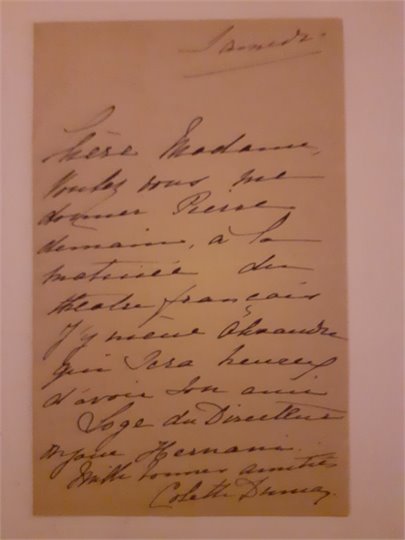 Samedi
Chère Madame,
Voulez vous me
donner Pierre
demain, à la
matinée du
théâtre français
J'y mène Alexandre
qui sera heureux
d'avoir son ami
Loge du Directeur
on joue Hernani.
Mille bonnes amitiés
Colette Dumas.